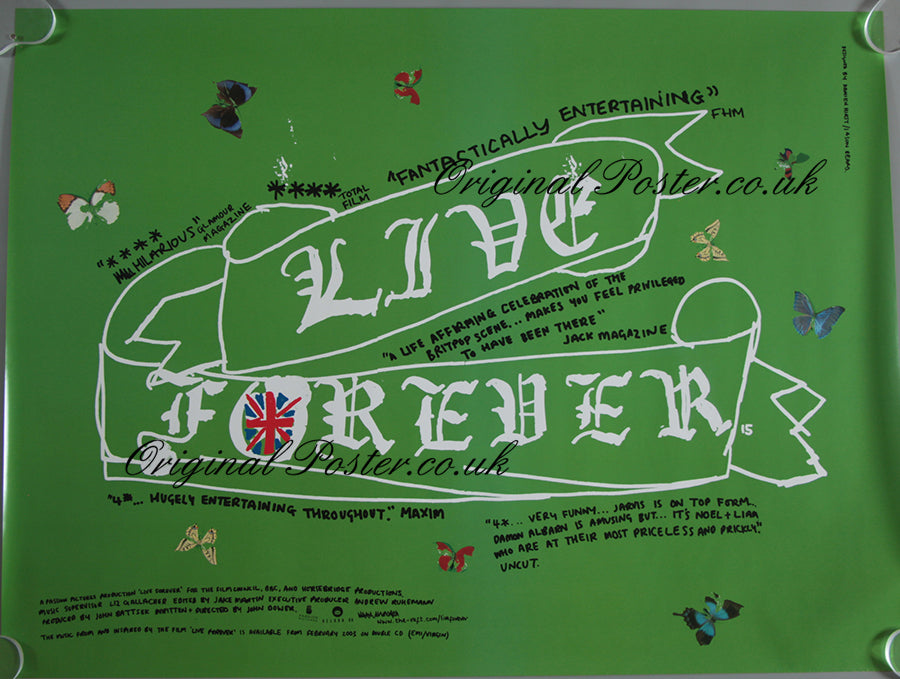 DESIGNED BY DAMIEN HIRST // JASON BEARD.
"FANTASTICALLY ENTERTAINING"
FHM
Original Poster.co.uk
**** TOTAL
FILM
"****
HILARIOUS"
GLAMOUR
MAGAZINE
LIVE
"A LIFE AFFIRMING CELEBRATION OF THE
BRITPOP SCENE... MAKES YOU FEEL PRIVILEGED
TO HAVE BEEN THERE"
JACK MAGAZINE
FOREVER
15
Original Poster.co.uk
"4*... HUGELY ENTERTAINING THROUGHOUT." MAXIM
"4*... VERY FUNNY... JARVIS IS ON TOP FORM..
DAMON ALBARN IS AMUSING BUT... IT'S NOEL + LIAM
WHO ARE AT THEIR MOST PRICELESS AND PRICKLY."
UNCUT.
A PASSION PICTURES PRODUCTION 'LIVE FOREVER' FOR THE FILM COUNCIL, BBC, AND HORSEBRIDGE PRODUCTIONS
MUSIC SUPERVISOR LIZ GALLACHER EDITED BY JAKE MARTIN EXECUTIVE PRODUCER ANDREW RUHEMANN
PRODUCED BY JOHN BATTSEK WRITTEN + DIRECTED BY JOHN DOWER.
THE MUSIC FROM AND INSPIRED BY THE FILM 'LIVE FOREVER' IS AVAILABLE FROM FEBRUARY 2003 ON DOUBLE CD (EMI/VIRGIN)